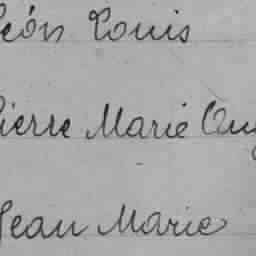 Léon Louis
Pierre Marie Aug
Jean Marie